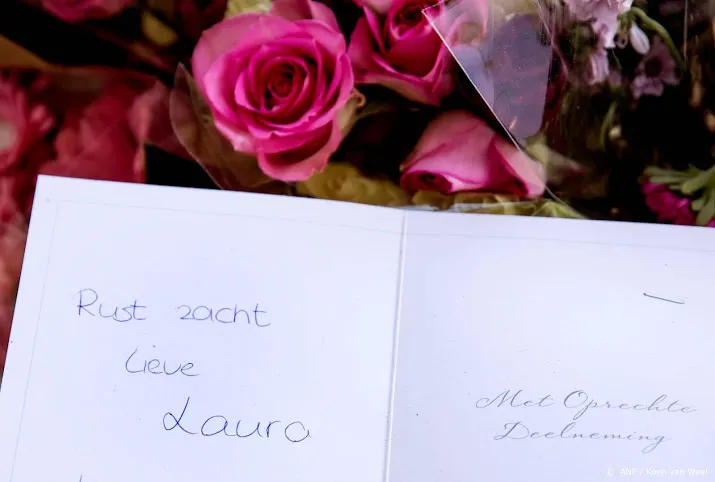 Rust zacht
Lieve
Laura
Met Oprechte
Deelneming
© ANP / Koen van Weel